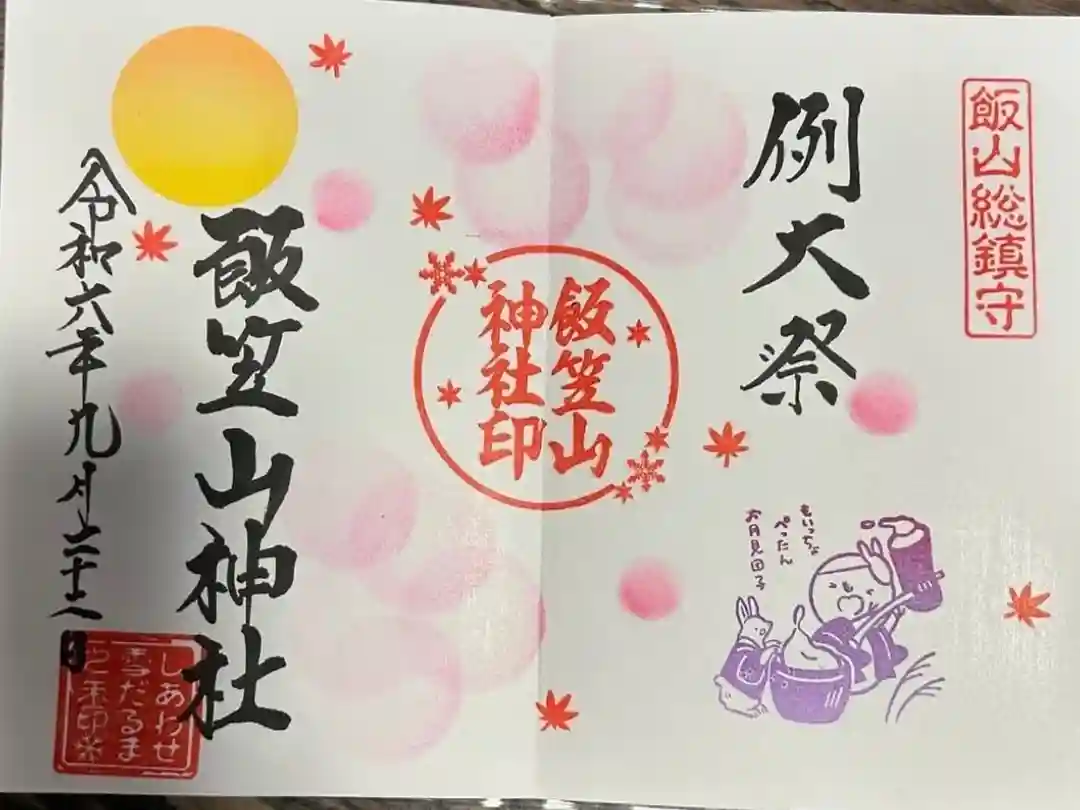 飯山総鎮守
例大祭
もいっちょ
ぺったん
お月見団子
飯笠山
神社印
飯笠山神社
令和六年九月二十八日
しあわせ
雪だるま
ご朱印